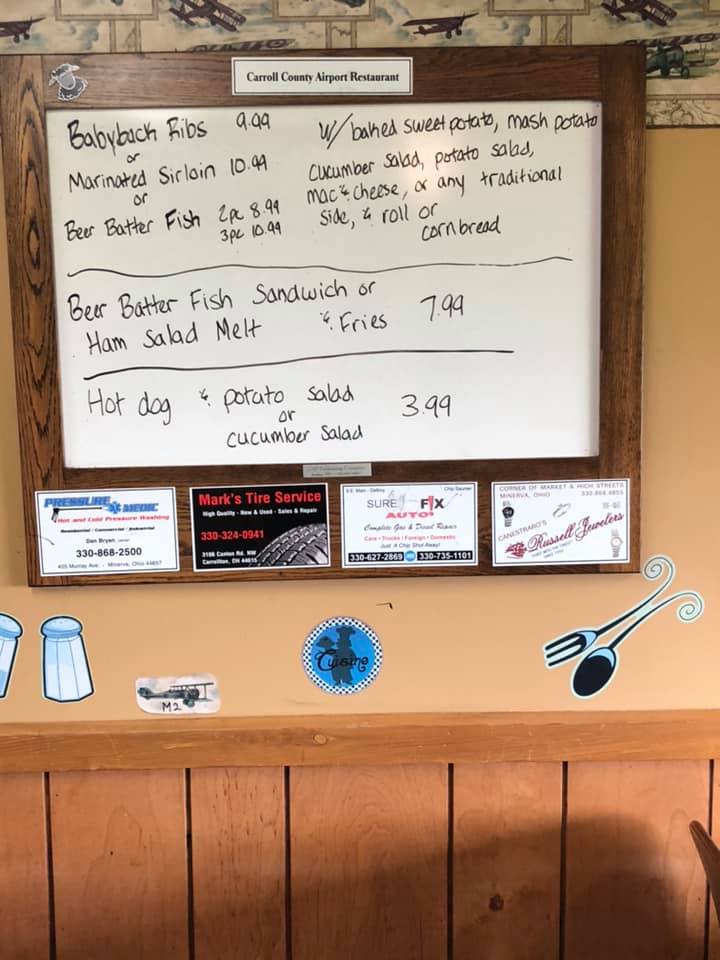 Carroll County Airport Restaurant
Babyback Ribs 9.99
or
Marinated Sirloin 10.99
or
Beer Batter Fish 2pc 8.99
3pc 10.99
w/ baked sweet potato, mash potato
cucumber salad, potato salad,
mac & cheese, or any traditional
side, & roll or
cornbread
Beer Batter Fish Sandwich or
Ham Salad Melt & Fries 7.99
Hot dog & potato salad 3.99
or
cucumber salad
PRESSURE MEDIC
Hot and Cold Pressure Washing
Residential / Commercial / Industrial
Dan Bryan, owner
330-868-2500
405 Murray Ave. - Minerva, Ohio 44657
Mark's Tire Service
High Quality - New & Used - Sales & Repair
330-324-0941
3108 Canton Rd. NW
Carrollton, OH 44615
Chip Saunier
SURE FIX
AUTO
Complete Gas & Diesel Repair
Cars • Trucks • Foreign • Domestic
Just A Chip Shot Away!
330-627-2869 330-735-1101
CORNER OF MARKET & HIGH STREETS
MINERVA, OHIO 330.868.4855
CANESTRARO'S
Russell Jewelers
Cuisine
M2